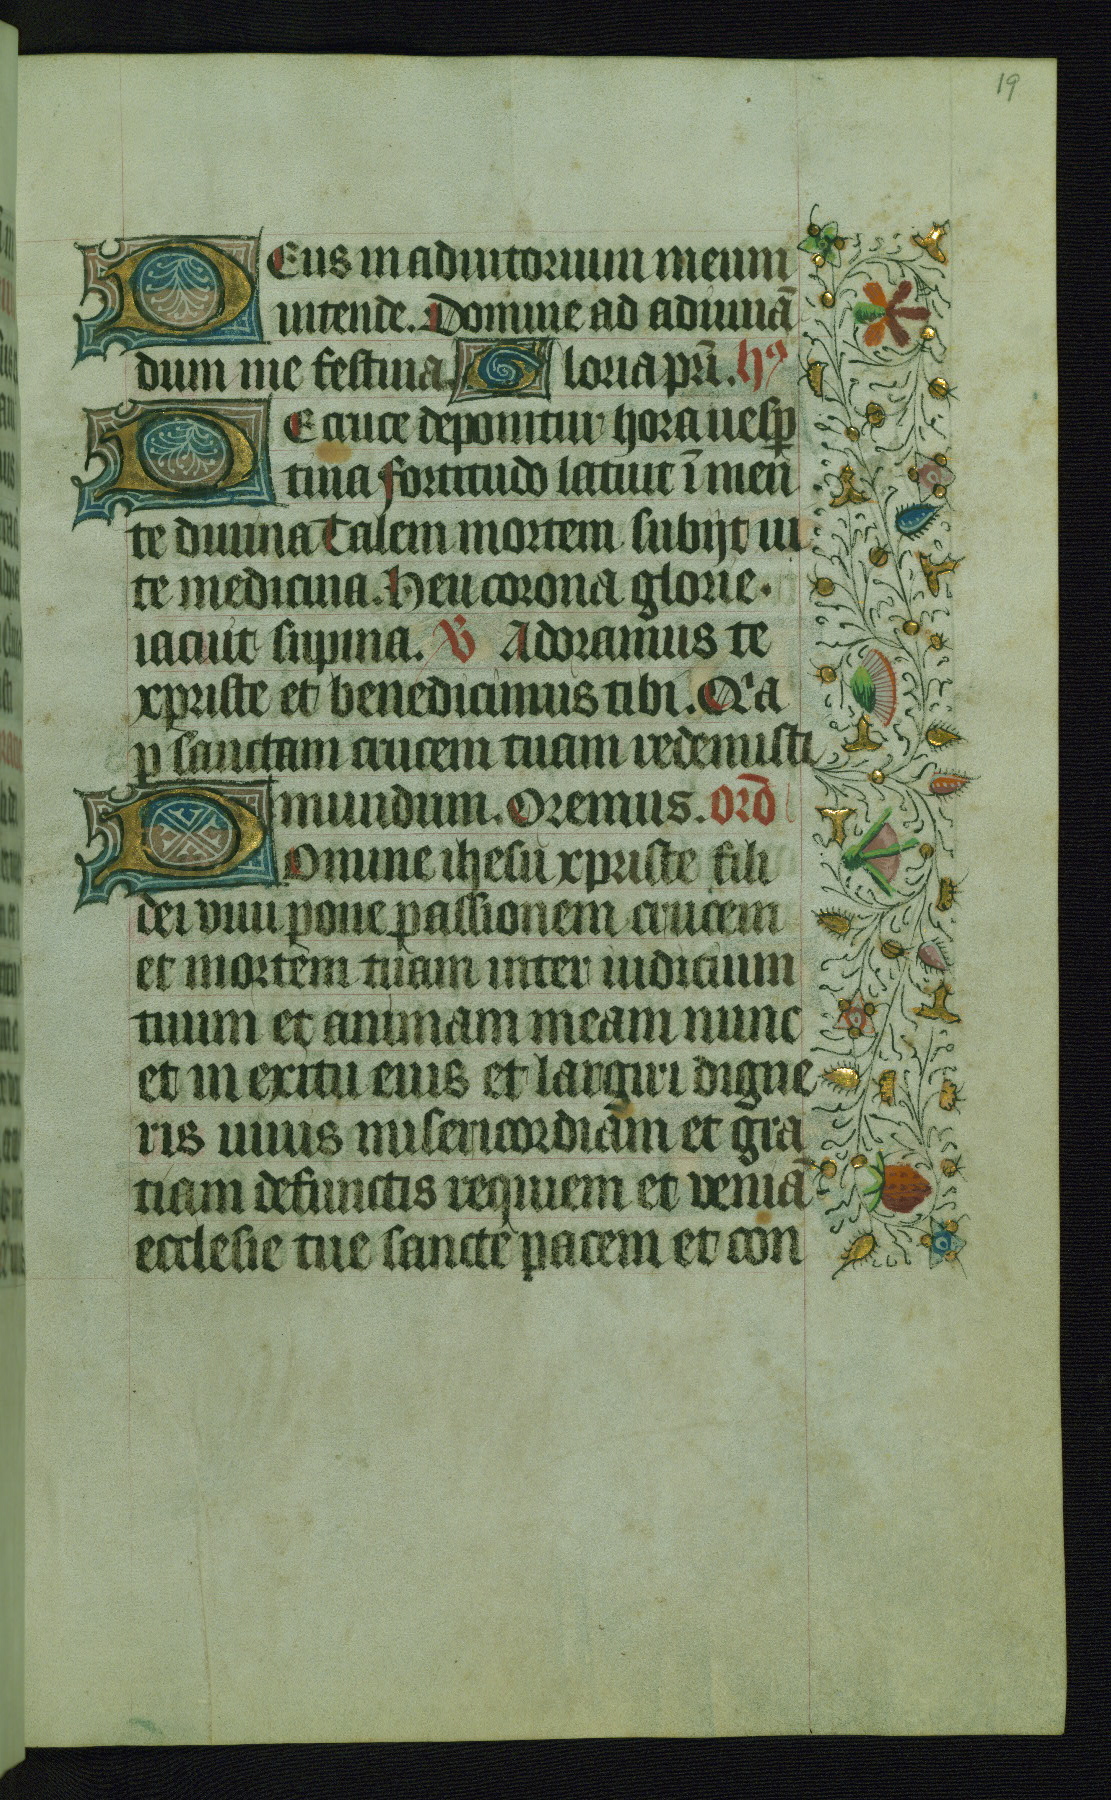 19
Deus in adiutorium meum
intende. Domine ad adiuuā
dum me festina. Gloria pr̄i. hꝰ
De cruce deponitur hora uesꝑ
tina fortitudo latuit ī men
te diuina Talem mortem subijt ui
te medicina. Heu corona glorie.
iacuit supina. ℣ Adoramus te
xpriste et benedicimus tibi. Qͥa
ꝑ sanctam crucem tuam redemisti
mundum. Oremus. orō
Domine ihesu xpriste fili
dei viui pone passionem crucem
et mortem tuam inter iudicium
tuum et animam meam nunc
et in exitu eius et largiri digne
ris uiuis misericordiam et gra
tiam defunctis requiem et veniā
ecclesie tue sancte pacem et con